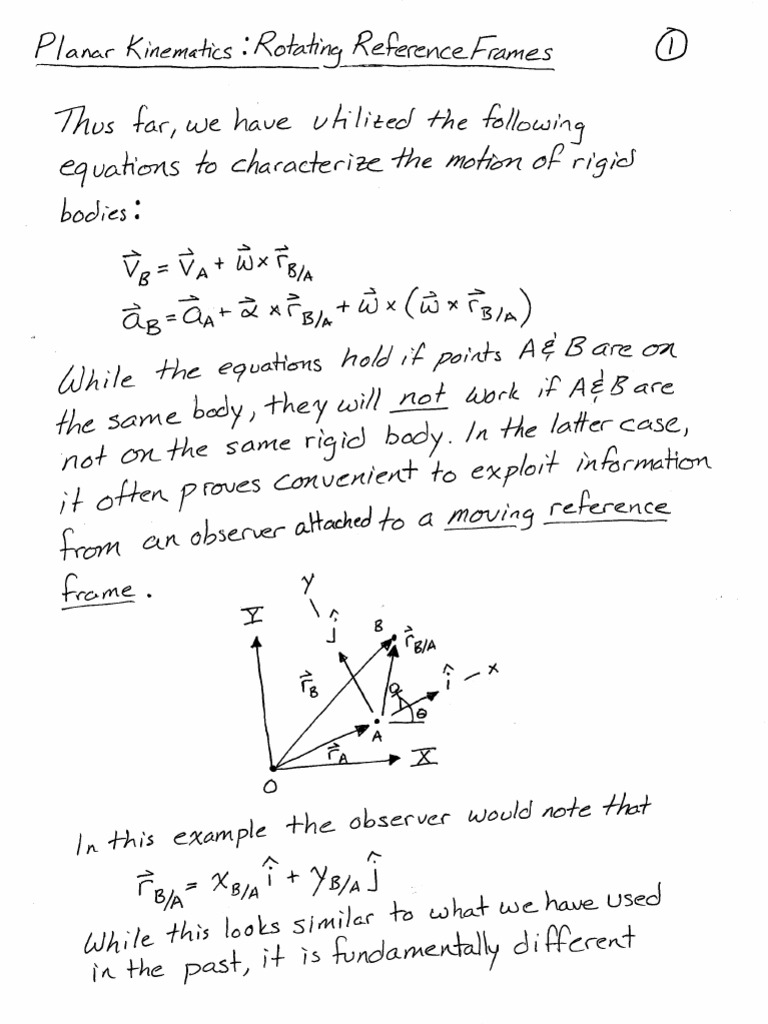 Planar Kinematics: Rotating Reference Frames ①
Thus far, we have utilized the following
equations to characterize the motion of rigid
bodies:
v⃗_B = v⃗_A + ω⃗ × r⃗_B/A
a⃗_B = a⃗_A + α⃗ × r⃗_B/A + ω⃗ × (ω⃗ × r⃗_B/A)
While the equations hold if points A & B are on
the same body, they will not work if A & B are
not on the same rigid body. In the latter case,
it often proves convenient to exploit information
from an observer attached to a moving reference
frame.
y
Y
ĵ
B
r⃗_B/A
r⃗_B
î
x
θ
A
r⃗_A
X
O
In this example the observer would note that
r⃗_B/A = x_B/A î + y_B/A ĵ
While this looks similar to what we have used
in the past, it is fundamentally different